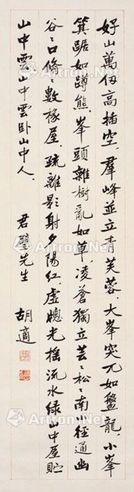 好山萬仞高插空,羣峰並立青芙蓉。大峯突兀如盤龍,小峯
箕踞如蹲熊。峯頭雜樹亂如草,凌蒼獨立芸芸松。南徑通幽
谷〻口脩數椽屋。疏籬影射夕陽紅,虛窗光搖流水綠。山中屋貯
山中雲,山中雲卧山中人。
君璧先生
胡適